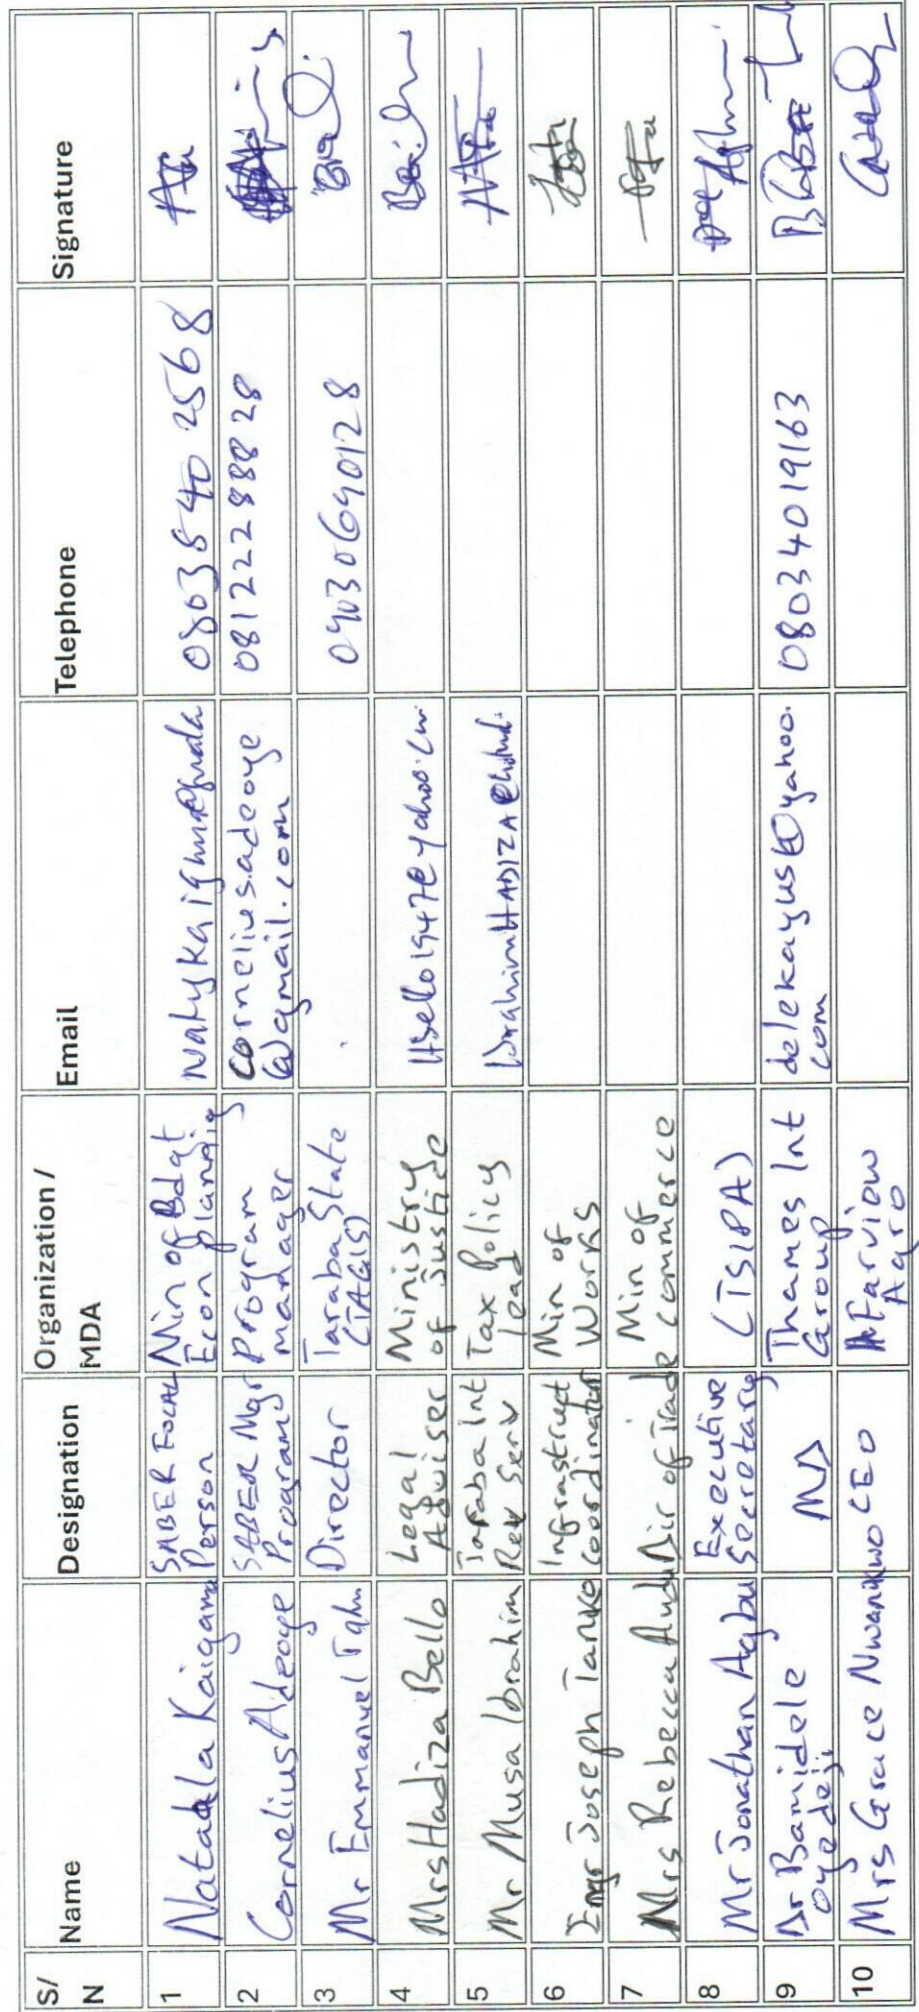 S/ N Name Designation Organization / MDA Email Telephone Signature
1 Natadala Kaigama SABER FOCAL Person Min of Bdgt Econ planning 0803540 2568
2 Cornelius Adeoye SABER Mgr Program Program manager cornelius.adeoye @gmail.com 08122288828
3 Mr Emmanuel Director Taraba State (TAGIS) 09030690128
4 Mrs Hadiza Bello Legal Adviser Ministry of Justice
5 Mr Musa Ibrahim Taraba Int Rev Serv Tax Policy lead
6 Engr Joseph Tanko Infrastruct coordinator Min of Works
7 Mrs Rebecca Audu Dir of Trade Min of commerce
8 Mr Jonathan Agbu Executive Secretary (TSIPA)
9 Dr Bamidele oyedeji MD Thames Int Group delekayus@yahoo. com 08034019163
10 Mrs Grace Nwankwo CEO Farview Agro